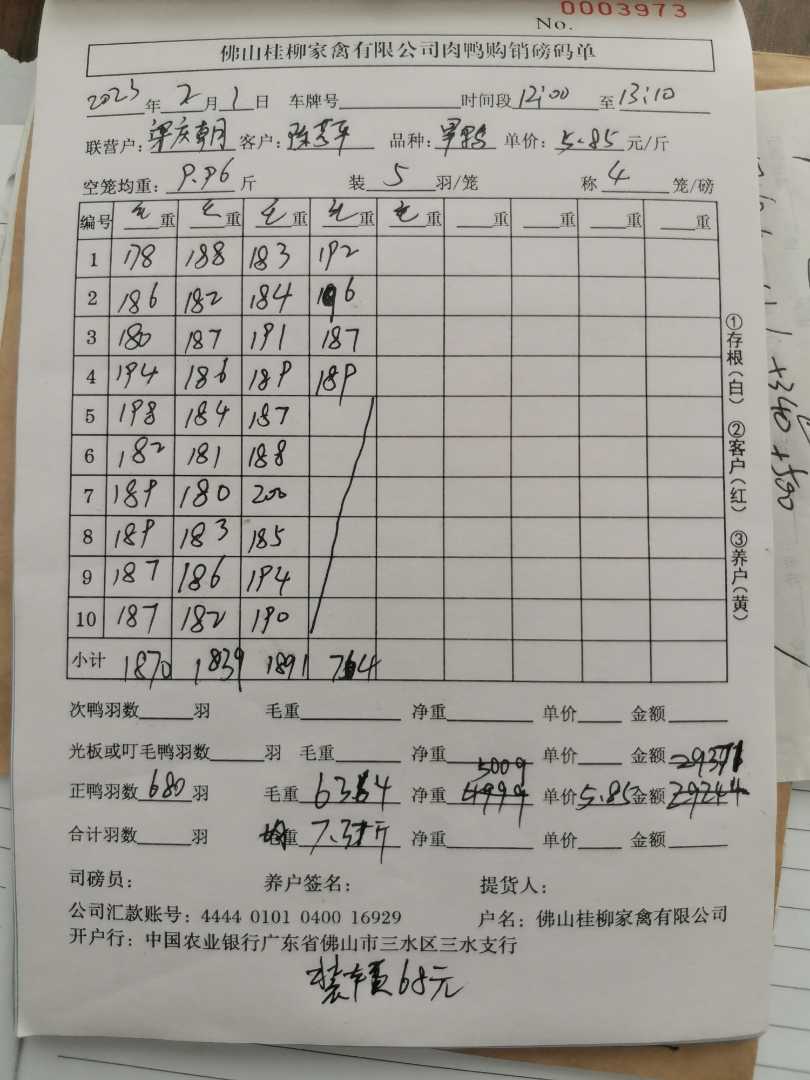 No. 0003973
佛山桂柳家禽有限公司肉鸭购销磅码单
2023年2月1日 车牌号 时间段12:00至13:10
联营户: 梁庆朝 客户: 陈芳平 品种: 单价: 5.85元/斤
空笼均重: 9.96斤 装5羽/笼 称4笼/磅
编号 毛重 毛重 毛重 毛重 毛重 重 重 重 重
1 178 188 183 192
2 186 182 184 196
3 180 187 191 187
4 194 186 189 189
5 198 184 187
6 182 181 188
7 189 180 200
8 189 183 185
9 187 186 194
10 187 182 190
小计 1870 1839 1891 764
①存根(白) ②客户(红) ③养户(黄)
次鸭羽数 羽 毛重 净重 单价 金额
光板或叮毛鸭羽数 羽 毛重 净重 单价 金额
5009 29371
正鸭羽数680羽 毛重6364 净重4999 单价5.85金额29244
合计羽数 羽 均重 7.3斤 净重 单价 金额
司磅员: 养户签名: 提货人:
公司汇款账号: 4444 0101 0400 16929 户名: 佛山桂柳家禽有限公司
开户行: 中国农业银行广东省佛山市三水区三水支行
装车费68元
+340 +500